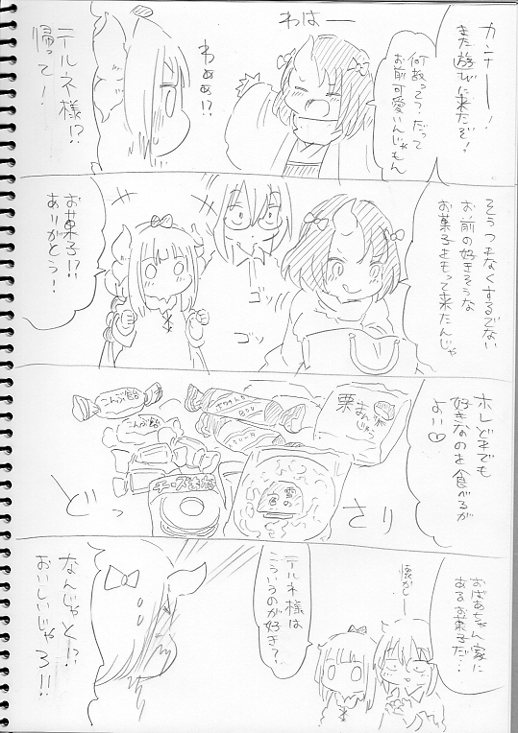 カンナーー!
また遊びに来たぞ!
わはーー
何故ってつ、だって
お前可愛いんじゃもん
わぁぁ!?
テルネ様!?
帰って!
そうつもなくするでない
お前の好きそうな
お菓子をもって来たんじゃ
ゴソッ
ゴソッ
お菓子!?
ありがとう!
ホレどれでも
好きなのを食べるが
よい♡
こんぶ飴
こんぶ飴
栗
まんじゅう
雪の宿
どっ
さり
おばあちゃん家に
あるお菓子だ…
懐かしー
テルネ様は
こういうのが好き?
なんじゃと!?
おいしいじゃろ!!